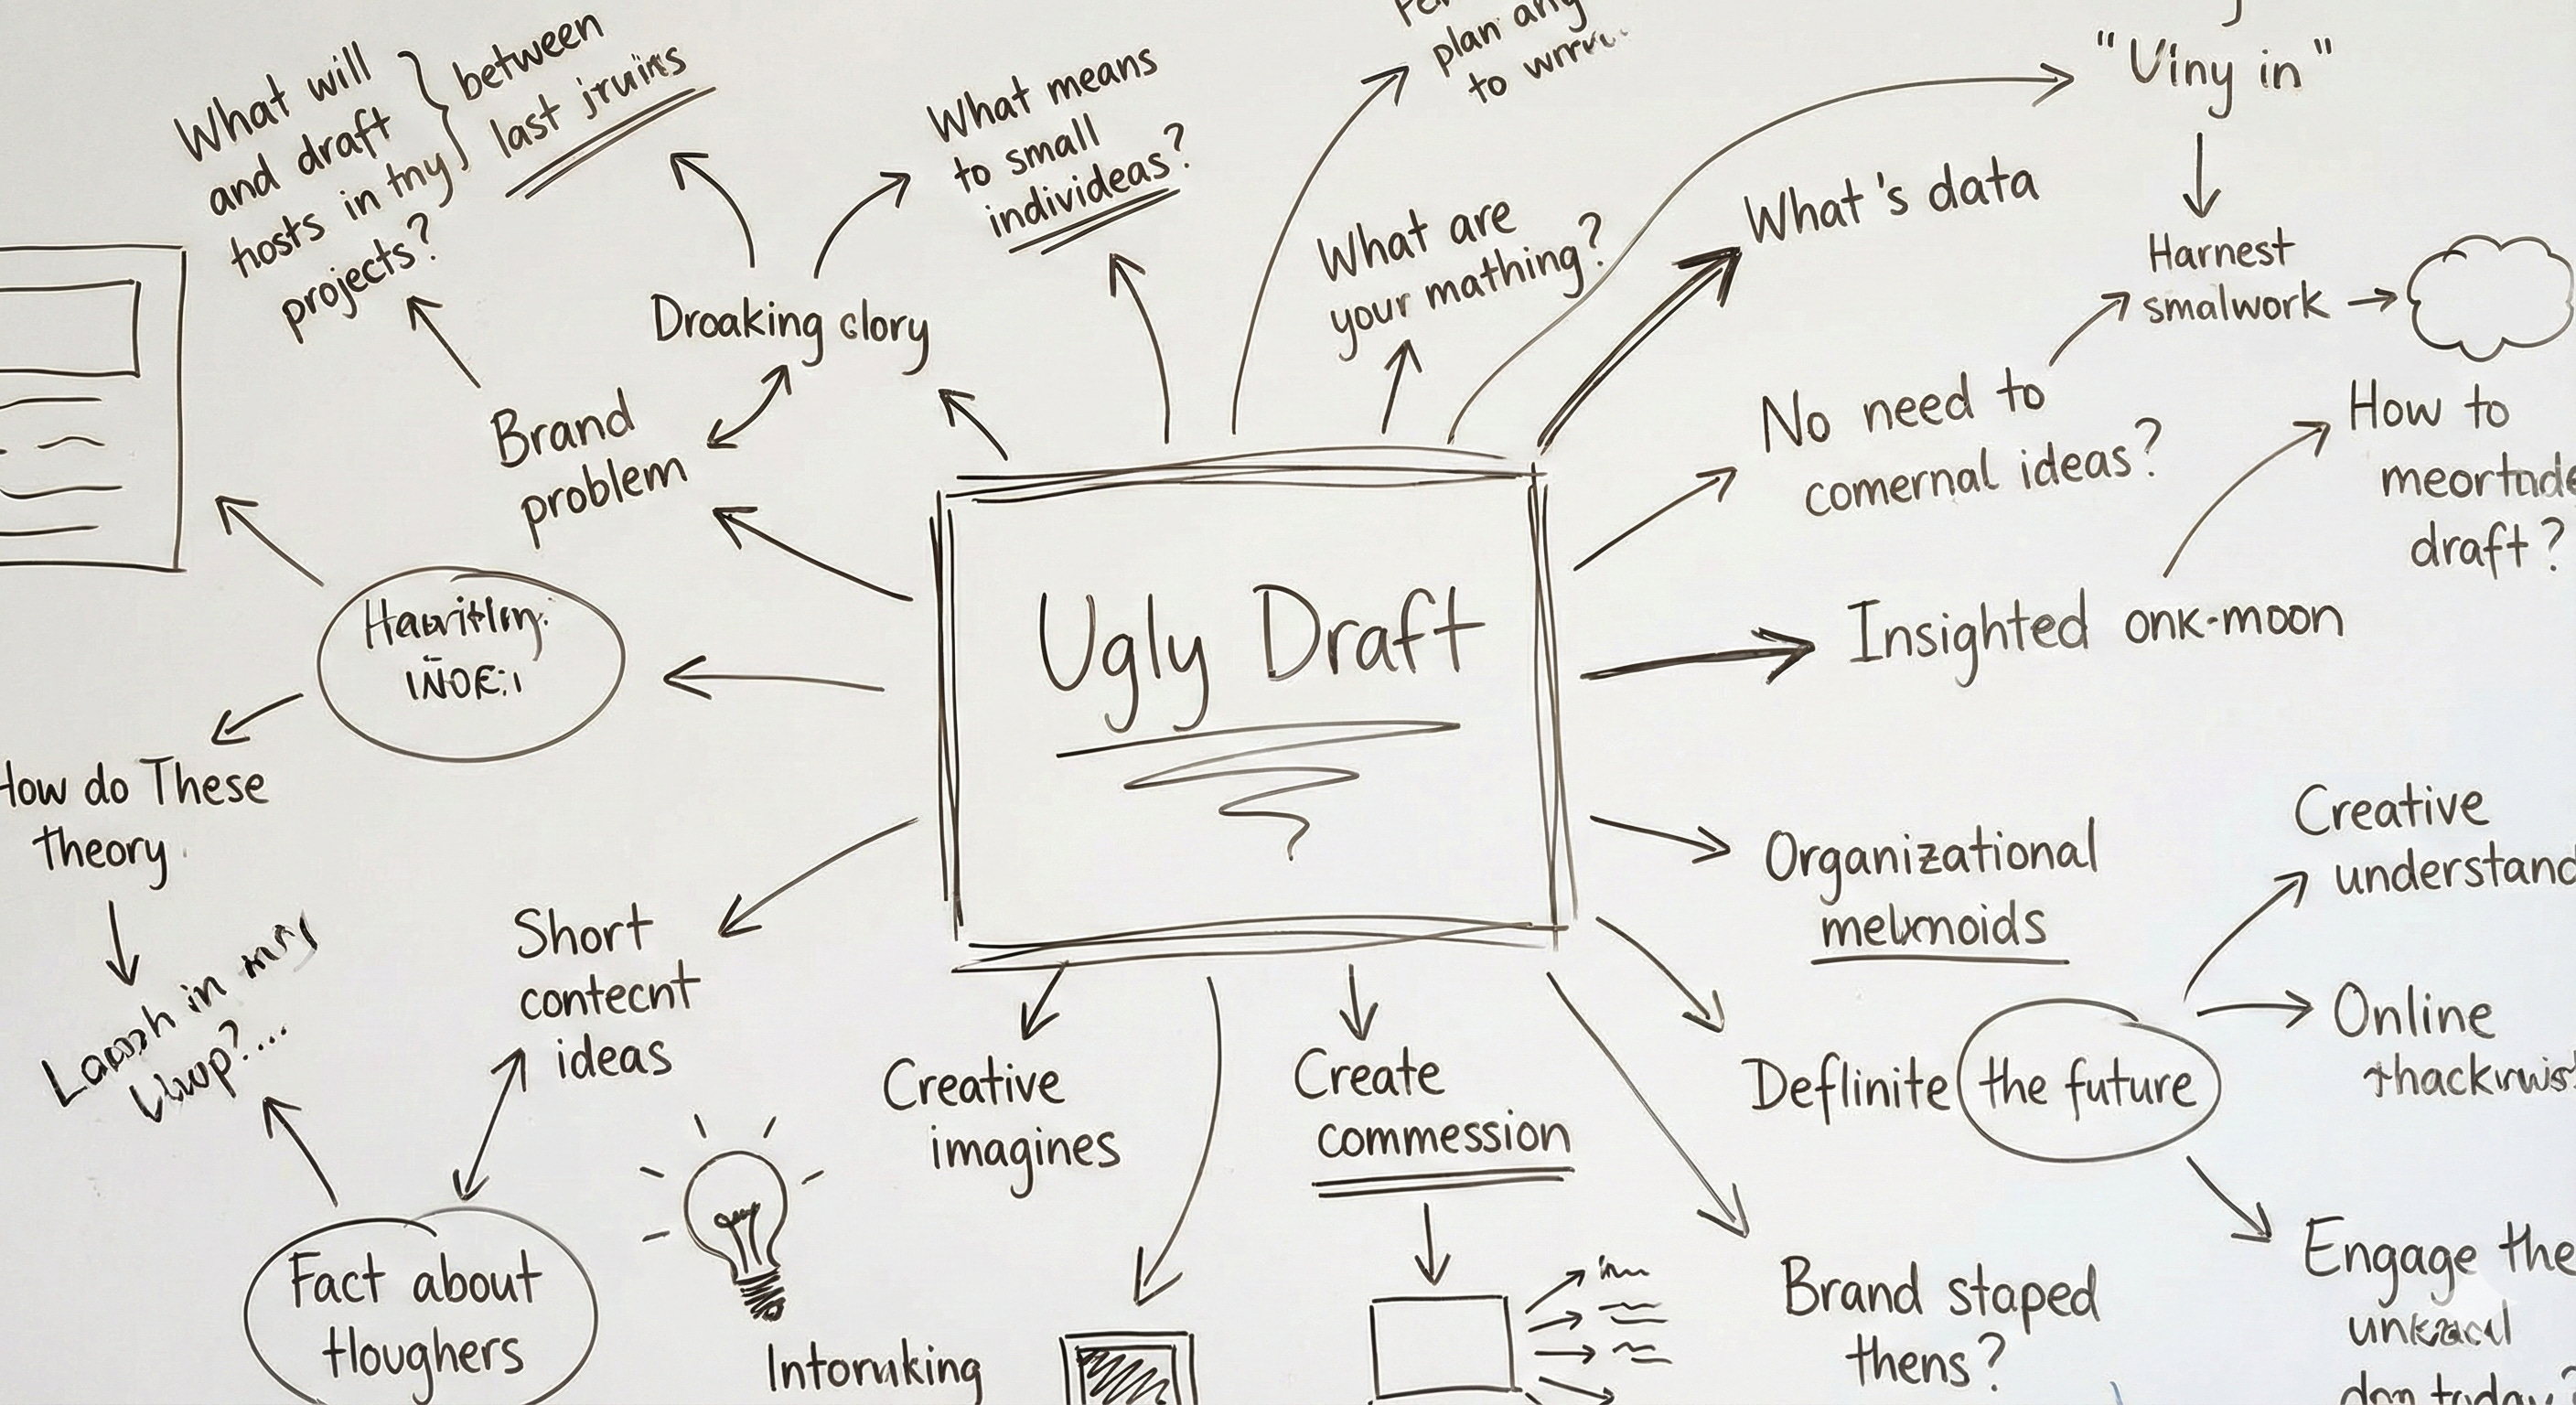 What will
and draft
hosts in tny
projects?
between
last jruins
What means
to small
individeas?
plan any
to
"Viny in"
What's data
What are
your mathing?
Harnest
smalwork
Droaking clory
Brand
problem
No need to
comernal ideas?
How to
meortnde
draft?
Ugly Draft
Insighted onk-moon
How do These
theory
Short
contecnt
ideas
Organizational
Creative
understand
Deflinite the future
Online
in
Creative
imagines
Create
commession
Fact about
tloughers
Brand staped
thens?
Engage the
Intornking